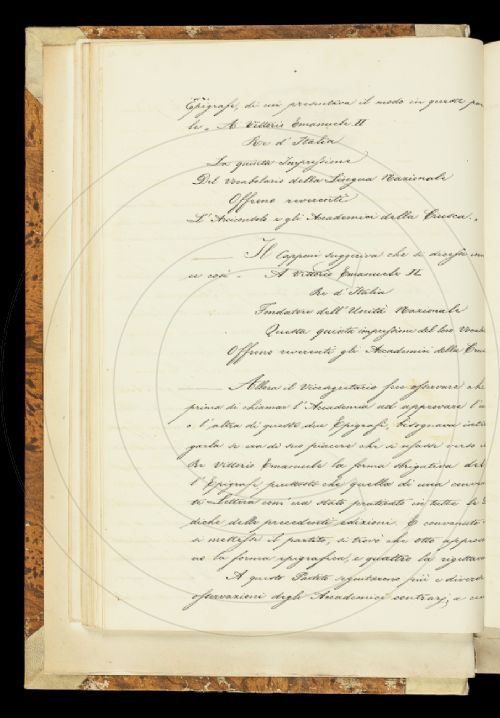 Epigrafe, di cui presentava il modo in queste par
le = A Vittorio Emanuele II
Re d'Italia
La quinta Impressione
Del Vocabolario della Lingua Nazionale
Offrono reverenti
L'Arciconsolo e gli Accademici della Crusca. =
Il Capponi suggeriva che si dicesse
ce così = A Vittorio Emanuele II
Re d'Italia
Fondatore dell'Unità Nazionale
Questa quinta impressione del loro Vocab
Offrono riverenti gli Accademici della Crus
Allora il Vicesegretario fece osservare che
prima di chiamar l'Accademia ad approvare l'u
o l'altra di queste due Epigrafi, bisognava inte
garla se era di suo piacere che si usasse verso
Re Vittorio Emanuele la forma sbrigativa del
l'Epigrafe piuttosto che quella di una conven
te lettera com'era stato praticato in tutte le
diche delle precedenti edizioni. E convenuto
si mettesse il partito, si trovò che otto approv
no la forma epigrafica, e quattro la rigettava
A questo Partito seguitarono più e diverse
osservazioni degli Accademici contrarj; a cui